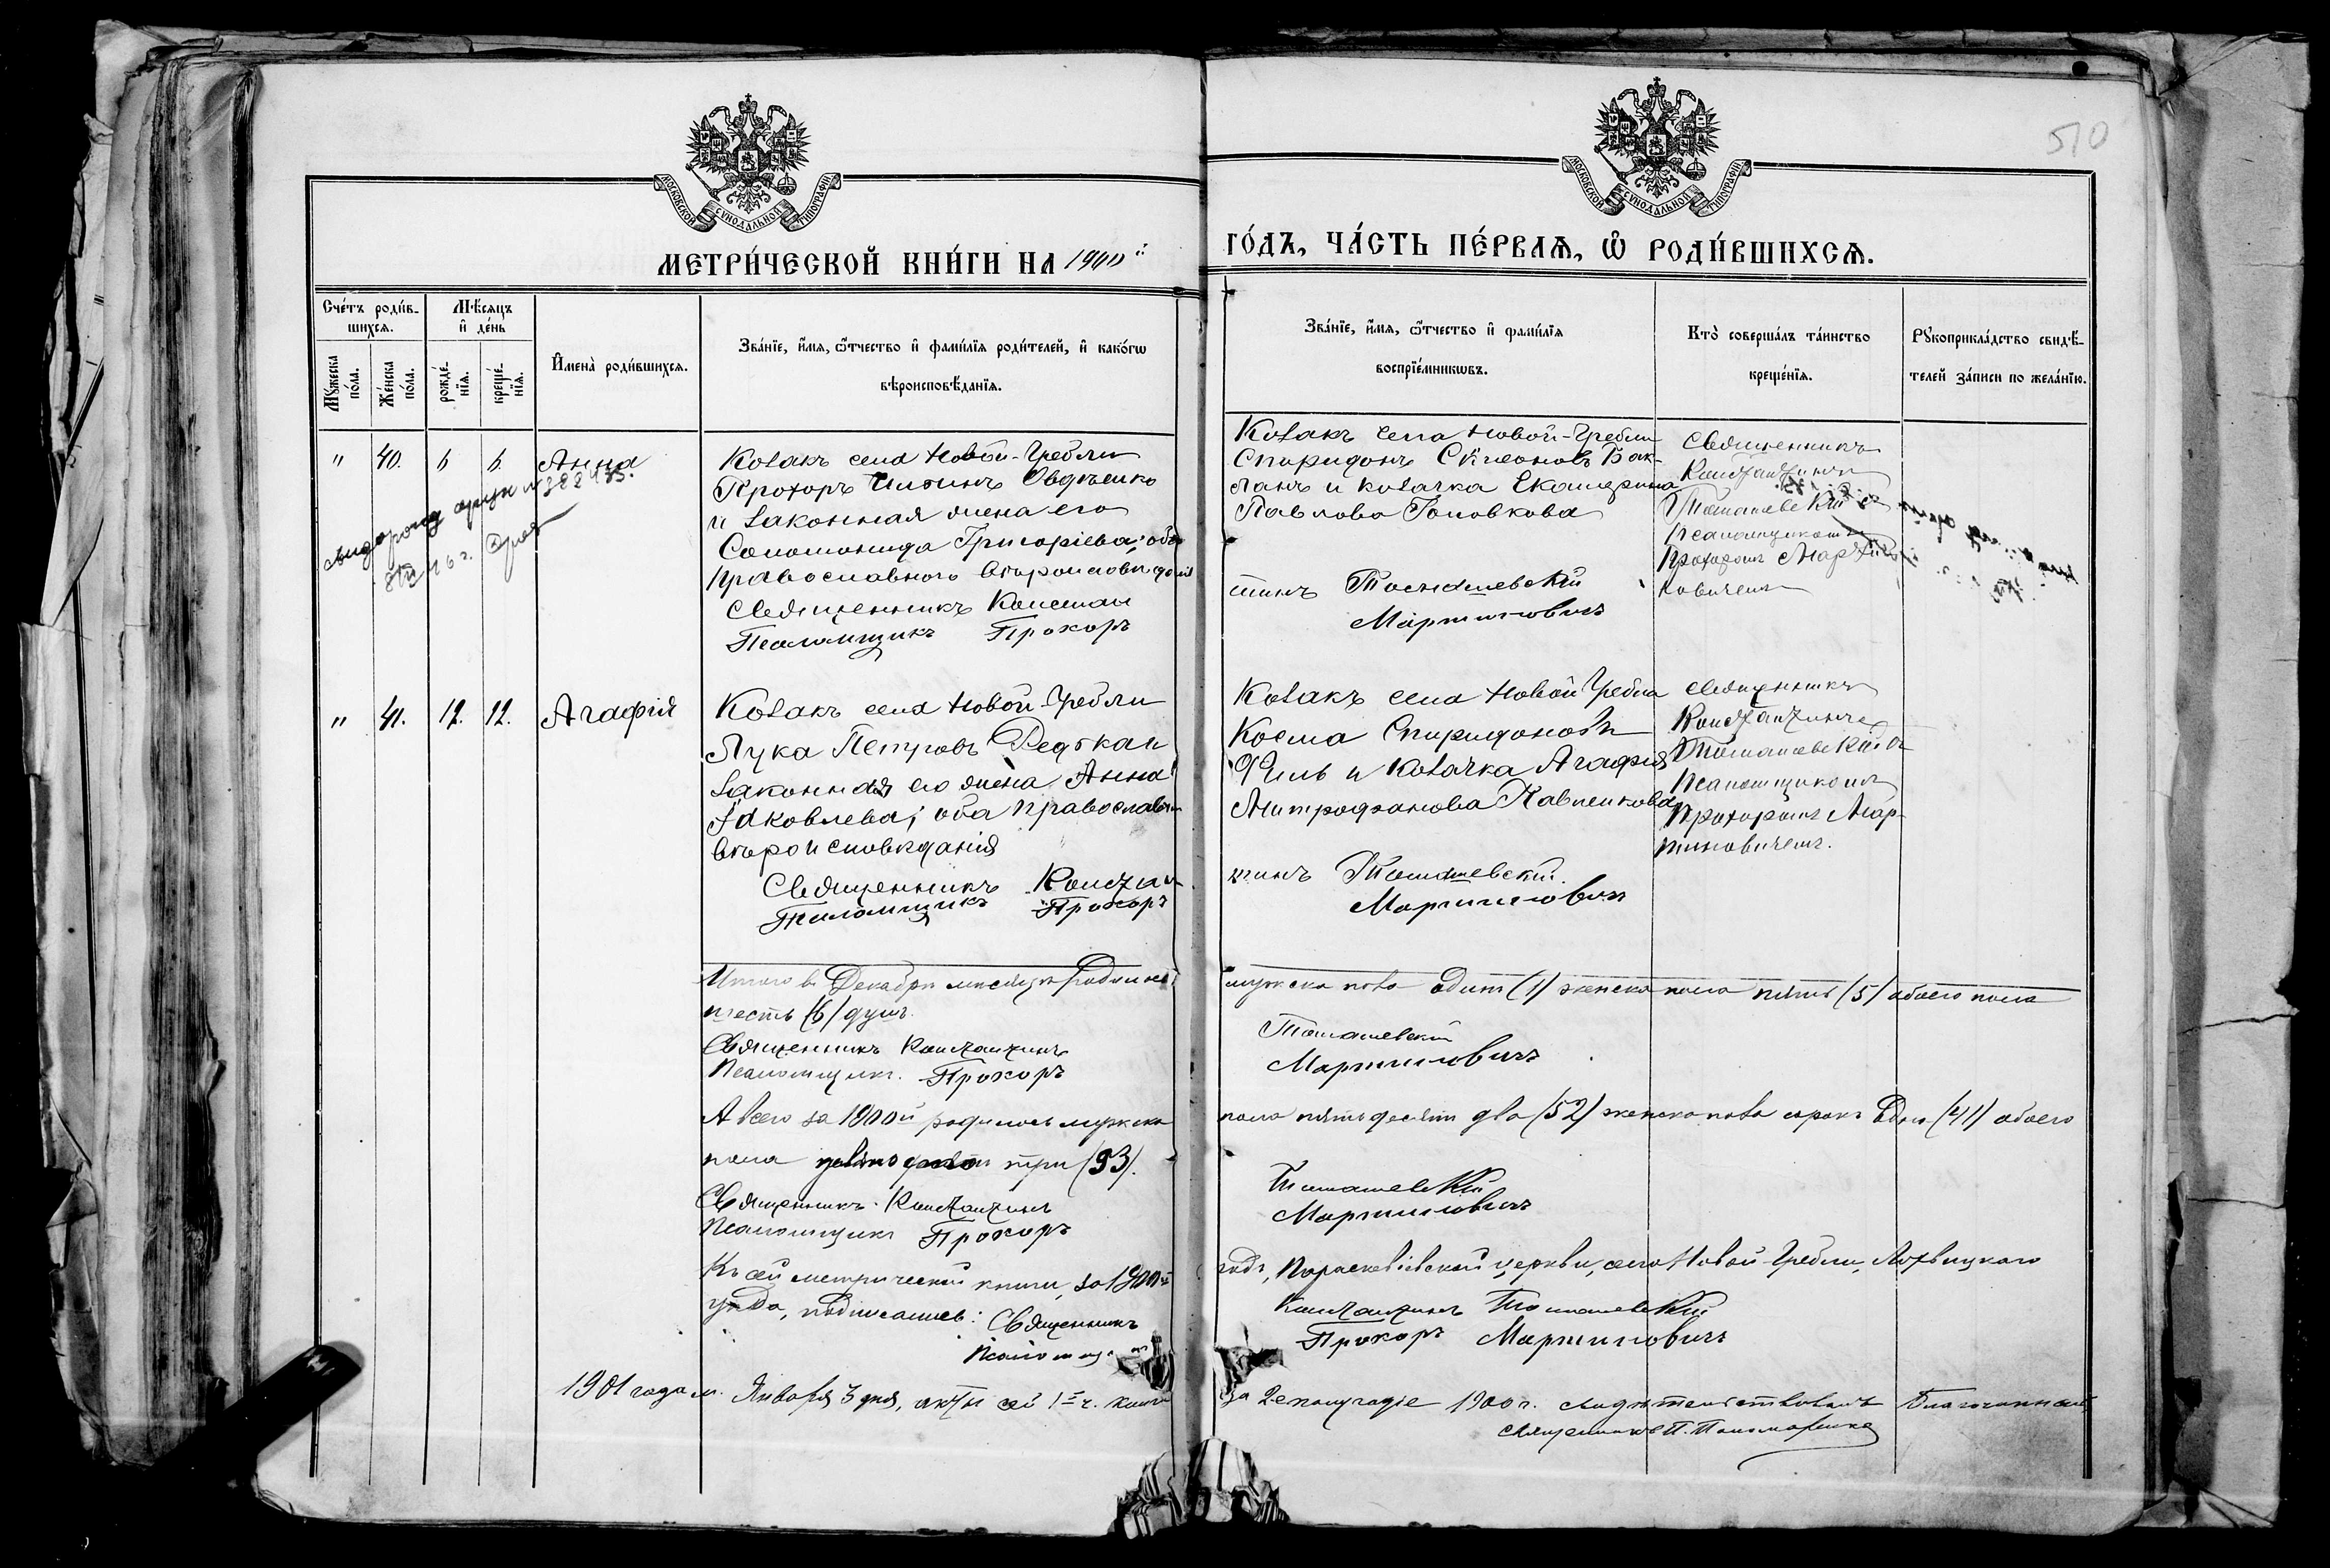 510
МОСКОВСКОЙ СѴНОДАЛЬНОЙ ТИПОГРАФІИ
МОСКОВСКОЙ СѴНОДАЛЬНОЙ ТИПОГРАФІИ
МЕТРИ́ЧЕСКОЙ КНИ́ГИ НА 1900й
ГО́ДЪ, ЧА́СТЬ ПЕ́РВАѦ, Ѡ҆ РОДИ́ВШИХСѦ.
Сче́тъ роди́в-
шихсѧ.
Мꙋ́жеска по́ла.
Же́нска по́ла.
Мѣ́сѧцъ
и҆ де́нь
рожде́нїѧ.
креще́нїѧ.
И҆мена̀ роди́вшихсѧ.
Зва́нїе, и҆́мѧ, ѻ҆́тчество и҆ фами́лїѧ роди́телей, и҆ како́гѡ
вѣроисповѣ́данїѧ.
Зва́нїе, и҆́мѧ, ѻ҆́тчество и҆ фами́лїѧ
воспрїе́мникѡвъ.
Кто̀ соверша́лъ та́инство
креще́нїѧ.
Рꙋкоприкла́дство свидѣ́-
телей за́писи по жела́нїю.
" 40. 6 6. Анна
Козакъ села Новой-Гребли
Прохоръ Овдѣенко
и законная жена его
Соломонида Григоріева; оба
православнаго вѣроисповѣданія
Священникъ Констан
Псаломщикъ Прохоръ
Козакъ села Новой-Гребли
Спиридонъ Симеоновъ Бак-
ланъ и козачка Екатерина
Павлова Головкова
тинъ Томашевскій
Мартиновичъ
Священникъ
Константинъ
Томашевскій съ
псаломщикомъ
Прохоромъ Марти-
новичемъ
" 41. 12. 12. Агафія
Козакъ села Новой-Гребли
Лука Петровъ Редька и
законная его жена Анна
Іаковлева; оба православн
вѣроисповѣданія
Священникъ Констан
Псаломщикъ Прохоръ
Козакъ села Новой Гребли
Косма Спиридоновъ
и козачка Агафія
Митрофанова Павленкова
тинъ Томашевскій.
Мартиновичъ
Священникъ
Константинъ
Томашевскій съ
Псаломщикомъ
Прохоромъ Мар-
тиновичемъ.
Итого въ Декабрѣ мѣсяцѣ родилось
мужска пола одинъ (1) женска пола пять (5) обоего пола
шесть (6) душъ.
Священникъ Константинъ Томашевскій
Псаломщикъ. Прохоръ Мартиновичъ
А всего за 1900й родилось мужска
пола пятьдесятъ два (52) женска пола сорокъ одна (41) обоего
пола девяносто три (93).
Священникъ Константинъ Томашевскій
Псаломщикъ Прохоръ Мартиновичъ
Къ сей метрической книгѣ, за 1900й
годъ, Параскевіевской церкви, села Новой-Гребли, Лохвицкаго
уѣзда, подписались: Священникъ Константинъ Томашевскій
Псаломщикъ Прохоръ Мартиновичъ
1901 года м. Января 3 дня, акты сей 1й ч. книги
за 2е полугодіе 1900 г. свидѣтельствовалъ Благочинный
священникъ П. Пономаренко